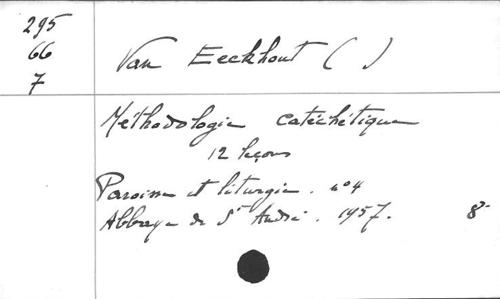 295
66
7
Van Eeckhout ( )
Méthodologie catéchétique
12 leçons
Paroisse et liturgie. n° 4
Abbaye de St André. 1957. 8°